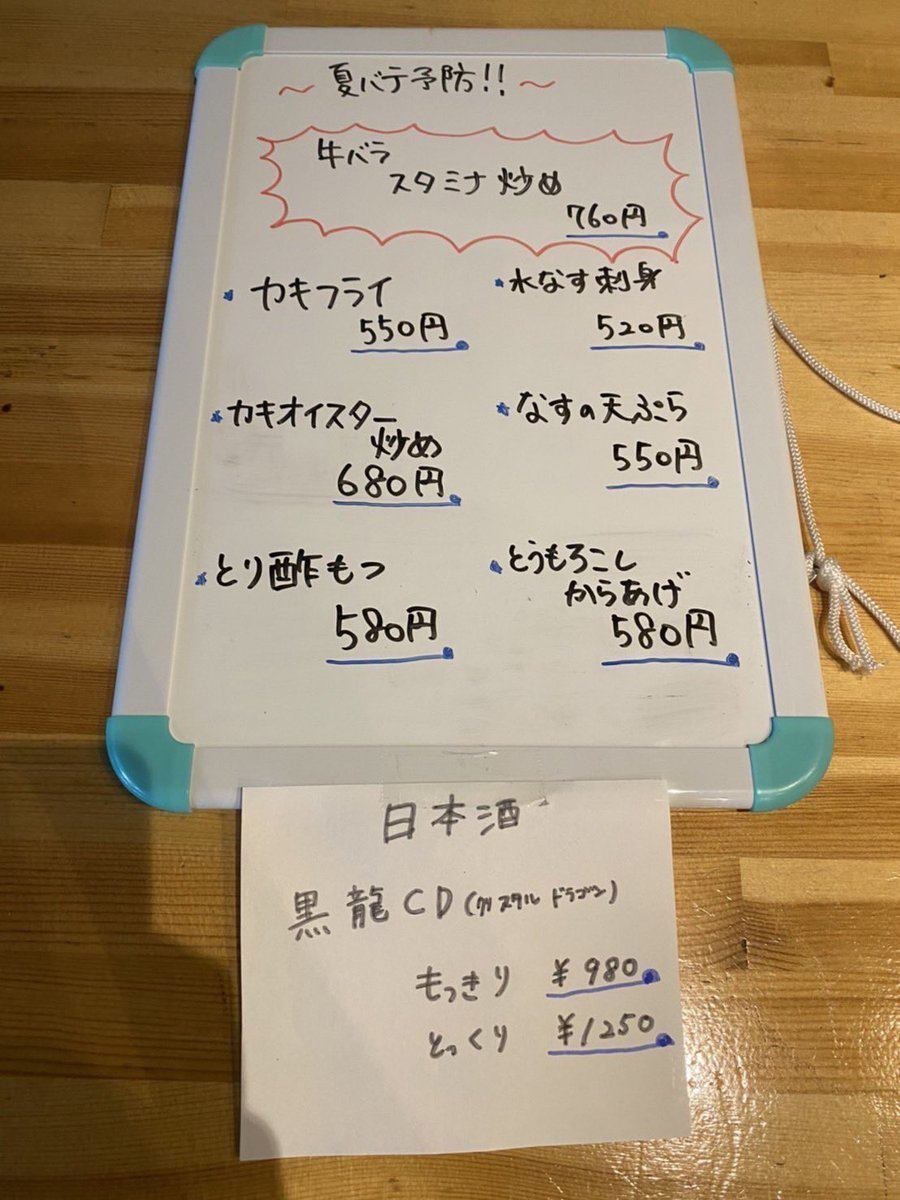 ～夏バテ予防!!～
牛バラ
スタミナ炒め
760円
カキフライ
550円
水なす刺身
520円
カキオイスター
炒め
680円
なすの天ぷら
550円
とり酢もつ
580円
とうもろこし
からあげ
580円
日本酒
黒龍CD(クリスタルドラゴン)
もっきり ¥980
とっくり ¥1250